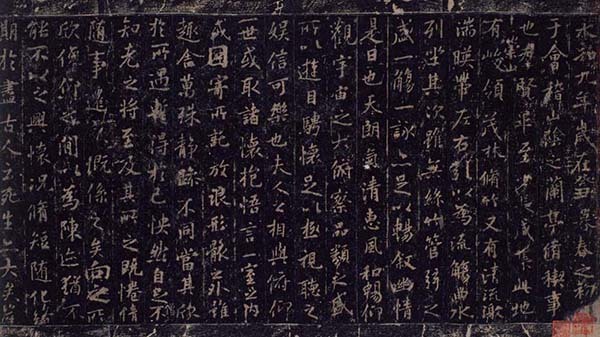 永和九年歲在癸丑暮春之初
于會稽山陰之蘭亭脩稧事
也賢畢至少長咸集此地
有崇山峻領茂林脩竹又有清流激
湍暎帶左右引以為流觴曲水
列坐其次雖無絲竹管弦之
盛一觴一詠亦足以暢叙幽情
是日也天朗氣清惠風和暢仰
觀宇宙之大俯察品類之盛
所以遊目騁懷足以極視聽之
娛信可樂也夫人之相與俯仰
一世或取諸懷抱悟言一室之內
或因寄所託放浪形骸之外雖
趣舍萬殊靜躁不同當其欣
於所遇暫得於己快然自足不
知老之將至及其所之既惓情
隨事遷感慨係之矣向之所
欣俛仰之間以為陳迹猶不
能不以之興懷況脩短隨化終
期於盡古人云死生亦大矣豈